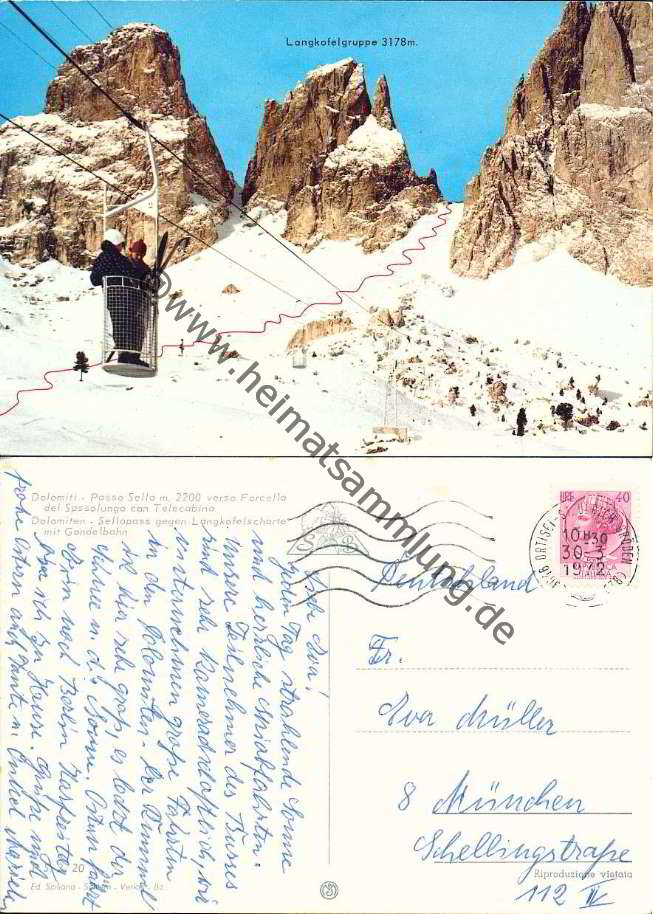 Langkofelgruppe 3178m.
© www.heimatsammlung.de
Dolomiti - Passo Sella m. 2200 verso Forcella
del Sassolungo con Telecabina
Dolomiten - Sellapass gegen Langkofelscharte
mit Gondelbahn
Liebe Eva!
Jeden Tag strahlende Sonne
und herrliche Skiabfahrten.
Unsere Teilnehmer des Kurses
sind sehr kameradschaftlich, wir
unternehmen große Fahrten
in den Dolomiten. Der Rummel
ist hier sehr groß, es lockt der
Schnee u. die Sonne. Ostern fahrt
nach Berlin
ich zu Hause. Grüße und
frohe Ostern auch Tante u. Onkel
20
Ed. Sciliana -
Bz
ORTISEI-ST. ULRICH
10 H30
30-3
1972
40
Deutschland
Fr.
Eva Müller
8 München
Schellingstraße
Riproduzione vietata
112 IV